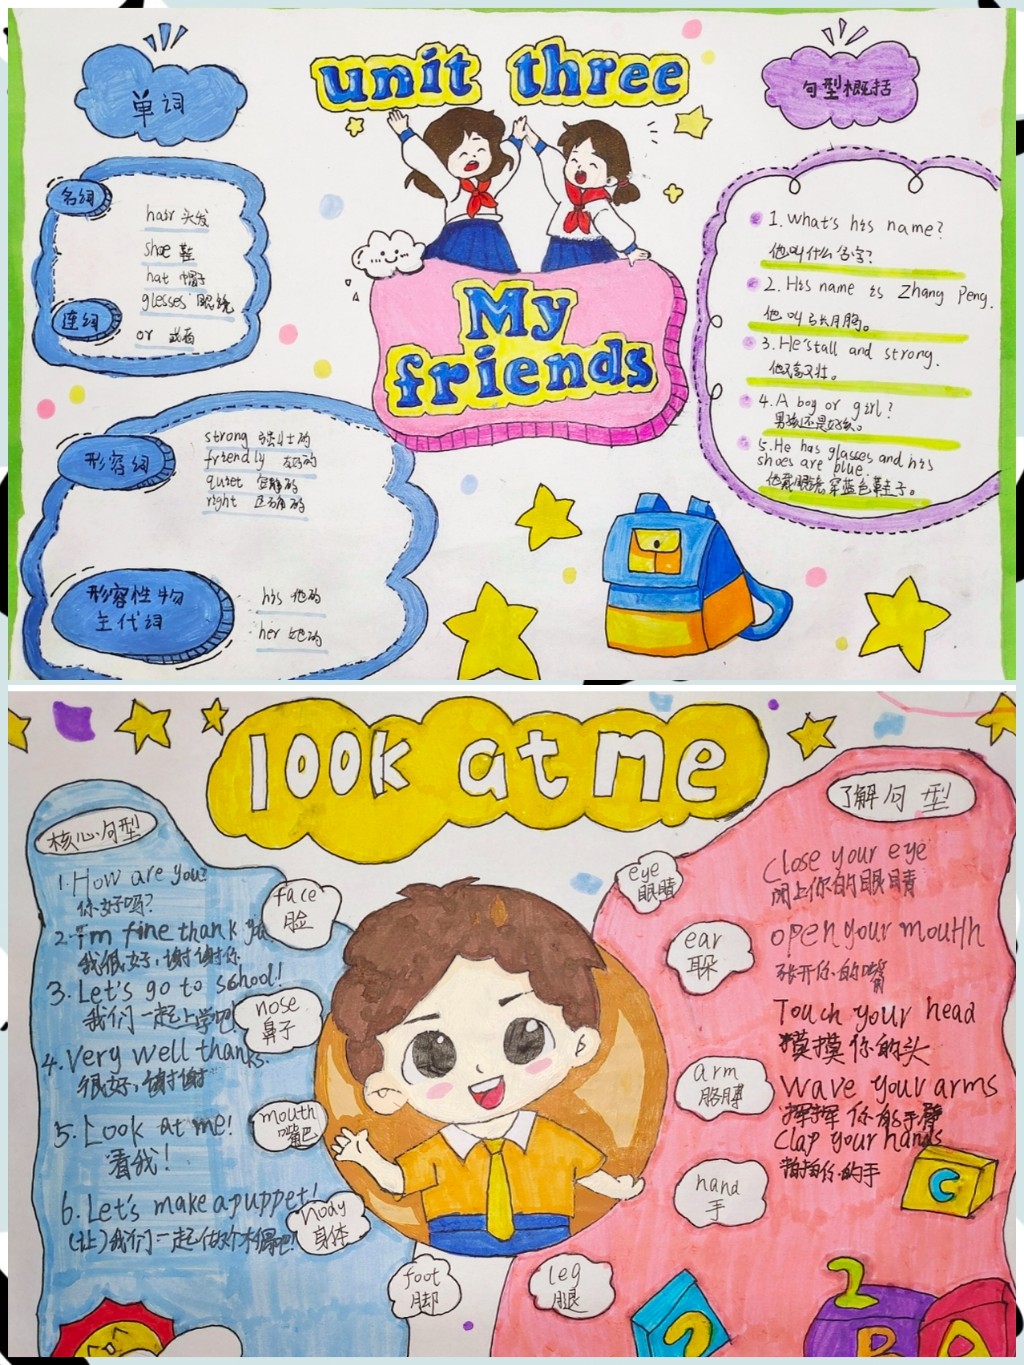 unit three
My
friends
单词
名词
hair 头发
shoe 鞋
hat 帽子
glesses 眼镜
连词
or 或者
形容词
strong 强壮的
friendly 友好的
quiet 安静的
right 正确的
形容性物
主代词
his 他的
her 她的
句型概括
1. What's his name?
他叫什么名字?
2. His name is Zhang Peng.
他叫张鹏。
3. He'stall and strong.
他又高又壮。
4. A boy or girl?
男孩还是女孩。
5. He has glasses and his
shoes are blue.
他戴眼镜穿蓝色鞋子。
look at me
核心句型
1. How are you?
你好吗?
2. I'm fine thank
我很好,谢谢你
3. Let's go to school!
我们一起上学吧!
4. Very well thanks.
很好,谢谢
5. Look at me!
看我!
6. Let's make a puppet!
(让)我们一起做个木偶吧!
face
脸
nose
鼻子
mouth
嘴巴
身体
foot
脚
leg
腿
eye
眼睛
ear
耳
arm
胳膊
hand
手
了解句型
Close your eye
闭上你的眼睛
open your mouth
张开你的嘴
Touch your head
摸摸你的头
Wave your arms
挥挥你的手臂
Clap your hands
拍拍你的手
C
2
B
A
2